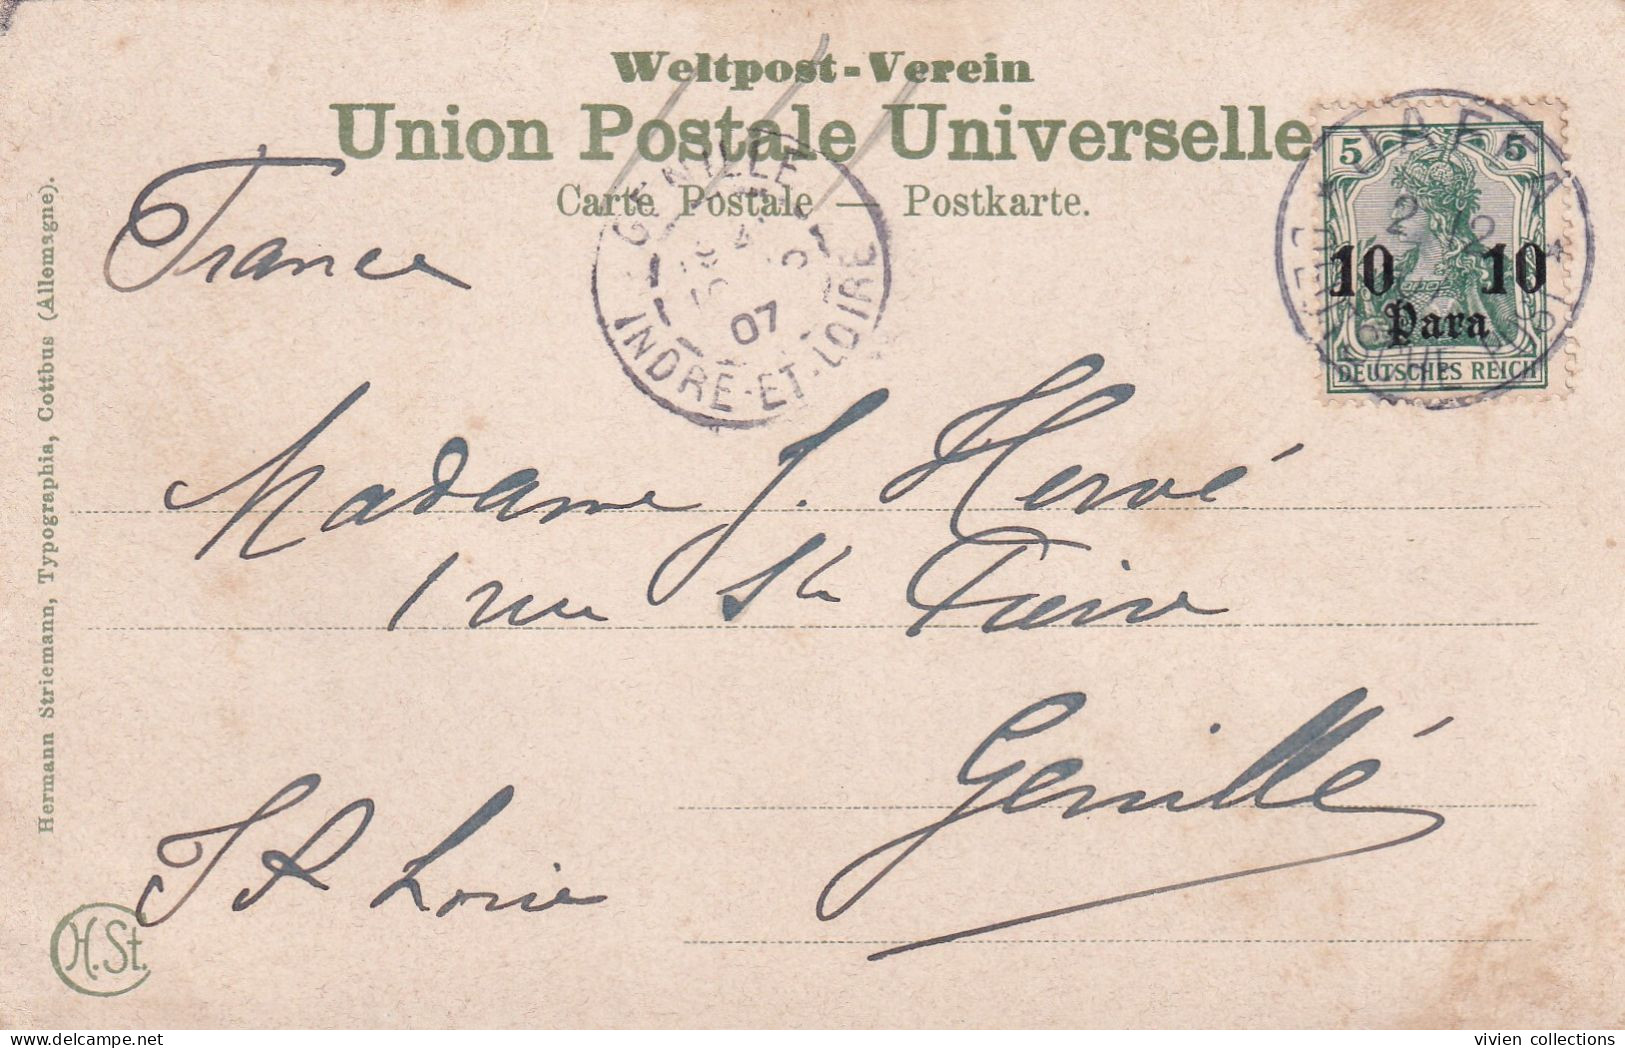 Weltpost-Verein
Union Postale Universelle
Carte Postale — Postkarte.
France
GENILLÉ
07
INDRE-ET-LOIRE
JAFFA
2 12
DEUTSCHE POST
5 5
10 10
Para
DEUTSCHES REICH
Madame J. Hervé
1 rue St Pierre
Genillé
I & Loire
Hermann Striemann, Typographia, Cottbus (Allemagne).
H.St.
vivien collections